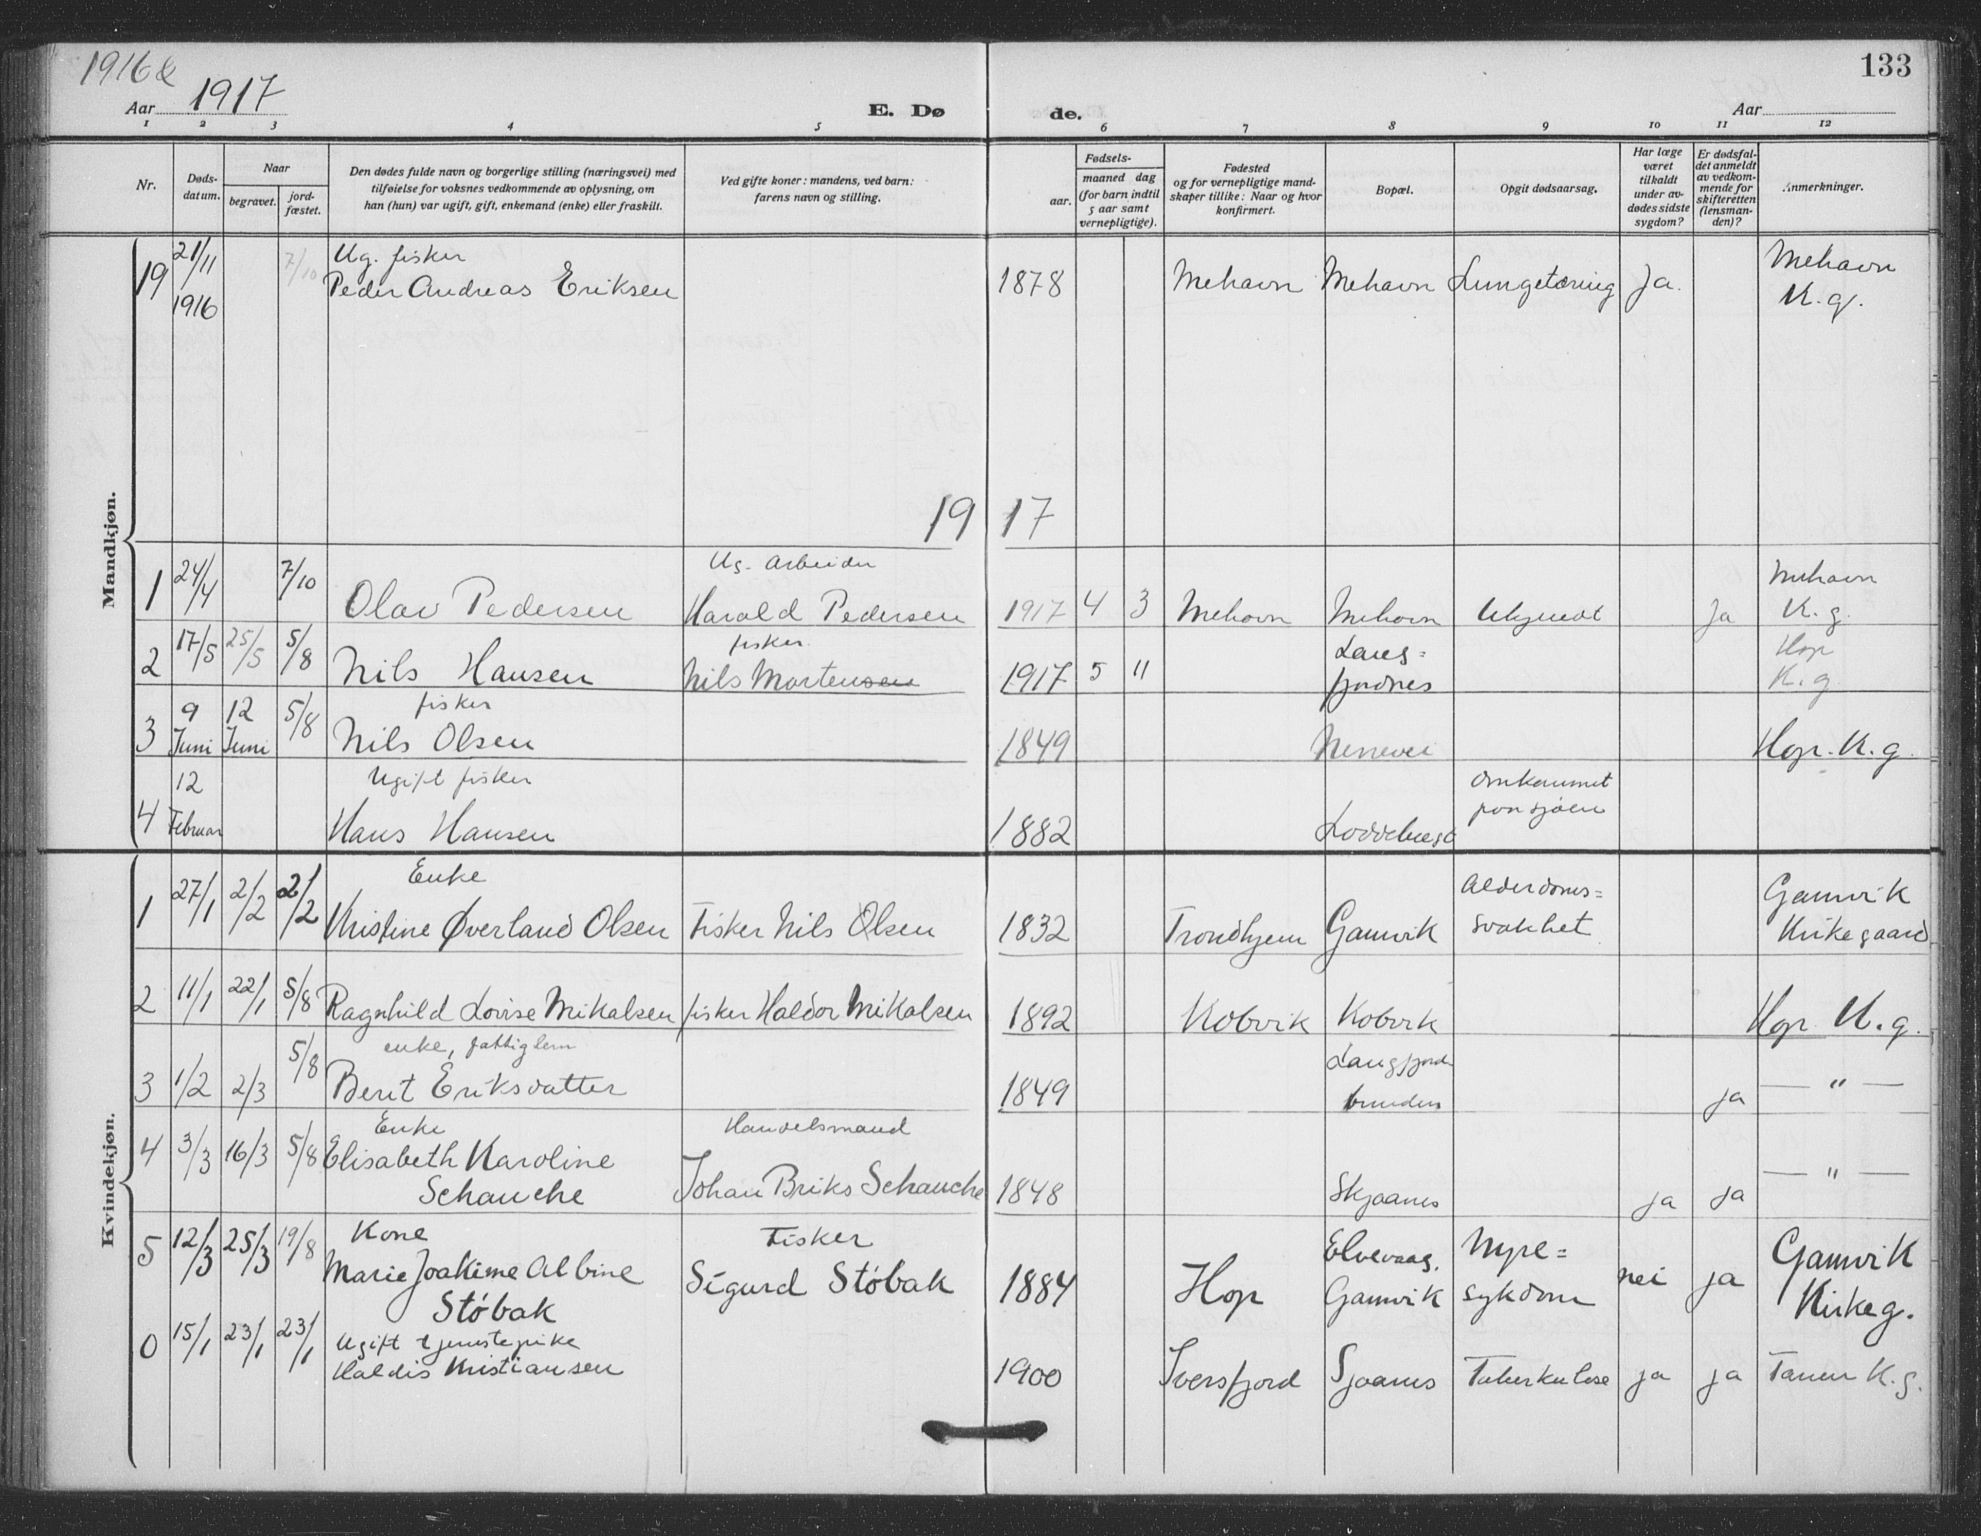 1916 &
Aar 1917
E. Dø de.
Aar
133
1 2 3 4 5 6 7 8 9 10 11 12
Nr.
Døds-
datum.
Naar
begravet.
jord-
fæstet.
Den dødes fulde navn og borgerlige stilling (næringsvei) med
tilføielse for voksnes vedkommende av oplysning, om
han (hun) var ugift, gift, enkemand (enke) eller fraskilt.
Ved gifte koner: mandens, ved barn:
farens navn og stilling.
Fødsels-
aar.
maaned dag
(for barn indtil
5 aar samt
vernepligtige).
Fødested
og for vernepligtige mand-
skaper tillike: Naar og hvor
konfirmert.
Bopæl.
Opgit dødsaarsag.
Har læge
været
tilkaldt
under av-
dødes sidste
sygdom?
Er dødsfal-
det anmeldt
av vedkom-
mende for
skifteretten
(lensman-
den)?
Anmerkninger.
Mandkjøn.
19 21/11 1916 7/10 Ug. fisker
Peder Andreas Eriksen 1878 Mehavn Mehavn Lungetæring Ja. Mehavn
K. g.
19 17
1 24/4 7/10 Olav Pedersen Ug. arbeider
Harald Pedersen 1917 4 3 Mehavn Mehavn Ukjendt Ja Mehavn
K. g.
2 17/5 25/5 5/8 Nils Hansen fisker.
Nils Mortensen 1917 5 11 Lang=
fjordnes Hop
K. g.
3 9 Juni 12 Juni 5/8 fisker
Nils Olsen 1849 Hop. K. g.
4 12 Februar Ugift fisker
Hans Hansen 1882 Omkommet
paa sjøen
Kvindekjøn.
1 27/1 2/2 2/2 Enke
Kristine Øverland Olsen Fisker Nils Olsen 1832 Trondhjem Gamvik Alderdoms=
svakhet Gamvik
Kirkegaard
2 11/1 22/1 5/8 Ragnhild Lovise Mikalsen fisker Haldor Mikalsen 1892 Kobvik Kobvik Hop K. g.
3 1/2 2/3 5/8 enke, fattiglem
Berit Eriksdatter 1849 Langfjord
bunden ja — " —
4 3/3 16/3 5/8 Enke
Elisabeth Karoline
Schanche Handelsmand
Johan Briks Schanche 1848 Skjaanes ja ja — " —
5 12/3 25/3 19/8 Kone
Marie Joakime Albine
Stóbak Fisker
Sigurd Stóbak 1884 Hop Elvevaag.
Gamvik Nyre=
sykdom nei ja Gamvik
Kirkeg.
0 15/1 23/1 23/1 Ugift tjenestepike
Haldis Kristiansen 1900 Iversfjord Sjaanes Tuberkulose ja ja Tanen K. g.